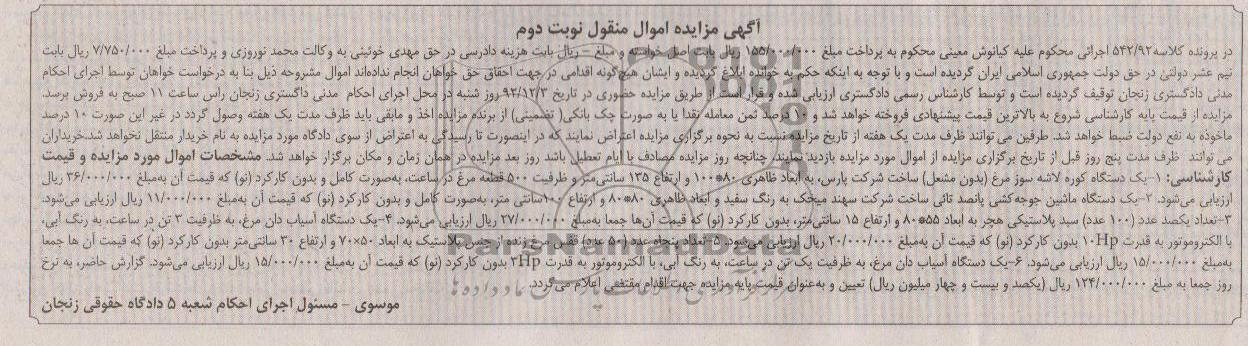 آگهی مزایده اموال منقول نوبت دوم
در پرونده کلاسه ۵۴۲/۹۲ اجرائی محکوم علیه کیانوش معینی محکوم به پرداخت مبلغ ۱۵۵/۰۰۰/۰۰۰ ریال بابت اصل خواسته و مبلغ - ریال بابت هزینه دادرسی در حق مهدی خوئینی به وکالت محمد نوروزی و پرداخت مبلغ ۷/۷۵۰/۰۰۰ ریال بابت
نیم عشر دولتی در حق دولت جمهوری اسلامی ایران گردیده است و با توجه به اینکه حکم به خوانده ابلاغ گردیده و ایشان هیچ‌گونه اقدامی در جهت احقاق حق خواهان انجام نداده‌اند اموال مشروحه ذیل بنا به درخواست خواهان توسط اجرای احکام
مدنی دادگستری زنجان توقیف گردیده است و توسط کارشناس رسمی دادگستری ارزیابی شده و قرار است از طریق مزایده حضوری در تاریخ ۹۲/۱۲/۳ روز شنبه در محل اجرای احکام مدنی داگستری زنجان راس ساعت ۱۱ صبح به فروش برسد.
مزایده از قیمت پایه کارشناسی شروع به بالاترین قیمت پیشنهادی فروخته خواهد شد و ۱۰ درصد ثمن معامله نقدا یا به صورت چک بانکی( تضمینی) از برنده مزایده اخذ و مابقی باید ظرف مدت یک هفته وصول گردد در غیر این صورت ۱۰ درصد
ماخوذه به نفع دولت ضبط خواهد شد. طرفین می توانند ظرف مدت یک هفته از تاریخ مزایده نسبت به نحوه برگزاری مزایده اعتراض نمایند که در اینصورت تا رسیدگی به اعتراض از سوی دادگاه مورد مزایده به نام خریدار منتقل نخواهد شد.خریداران
می توانند ظرف مدت پنج روز قبل از تاریخ برگزاری مزایده از اموال مورد مزایده بازدید نمایند، چنانچه روز مزایده مصادف با ایام تعطیل باشد روز بعد مزایده در همان زمان و مکان برگزار خواهد شد. مشخصات اموال مورد مزایده و قیمت
کارشناسی: ۱-یک دستگاه کوره لاشه سوز مرغ (بدون مشعل) ساخت شرکت پارس، به ابعاد ظاهری ۸۰*۱۰۰ و ارتفاع ۱۳۵ سانتی‌متر و ظرفیت ۵۰۰ قطعه مرغ در ساعت، به‌صورت کامل و بدون کارکرد (نو) که قیمت آن به‌مبلغ ۳۶/۰۰۰/۰۰۰ ریال
ارزیابی می‌شود. ۲-یک دستگاه ماشین جوجه‌کشی پانصد تائی ساخت شرکت سهند میخک به رنگ سفید و ابعاد ظاهری ۸۰*۸۰ و ارتفاع ۱۰۰سانتی متر، به‌صورت کامل و بدون کارکرد (نو) که قیمت آن به‌مبلغ ۱۱/۰۰۰/۰۰۰ ریال ارزیابی می‌شود.
۳-تعداد یکصد عدد (۱۰۰ عدد) سبد پلاستیکی هجر به ابعاد ۵۵*۸۰ و ارتفاع ۱۵ سانتی‌متر، بدون کارکرد (نو) که قیمت آن‌ها جمعا به‌مبلغ ۲۷/۰۰۰/۰۰۰ ریال ارزیابی می‌شود. ۴-یک دستگاه آسیاب دان مرغ، به ظرفیت ۳ تن در ساعت، به رنگ آبی،
با الکتروموتور به قدرت ۱۰Hp بدون کارکرد (نو) که قیمت آن به‌مبلغ ۲۰/۰۰۰/۰۰۰ ریال ارزیابی می‌شود. ۵-تعداد پنجاه عدد (۵۰ عدد) قفس مرغ زنده از جنس پلاستیک به ابعاد ۵۰×۷۰ و ارتفاع ۳۰ سانتی‌متر بدون کارکرد (نو) که قیمت آن ها جمعا
به‌مبلغ ۱۵/۰۰۰/۰۰۰ ریال ارزیابی می‌شود. ۶-یک دستگاه آسیاب دان مرغ، به ظرفیت یک تن در ساعت، به رنگ آبی، با الکتروموتور به قدرت ۳Hp بدون کارکرد (نو) که قیمت آن به‌مبلغ ۱۵/۰۰۰/۰۰۰ ریال ارزیابی می‌شود. گزارش حاضر، به نرخ
روز جمعا به مبلغ ۱۲۴/۰۰۰/۰۰۰ ریال (یکصد و بیست و چهار میلیون ریال) تعیین و به‌عنوان قیمت پایه مزایده جهت اقدام مقتضی اعلام می‌گردد.
موسوی - مسئول اجرای احکام شعبه ۵ دادگاه حقوقی زنجان
ParsNamadData